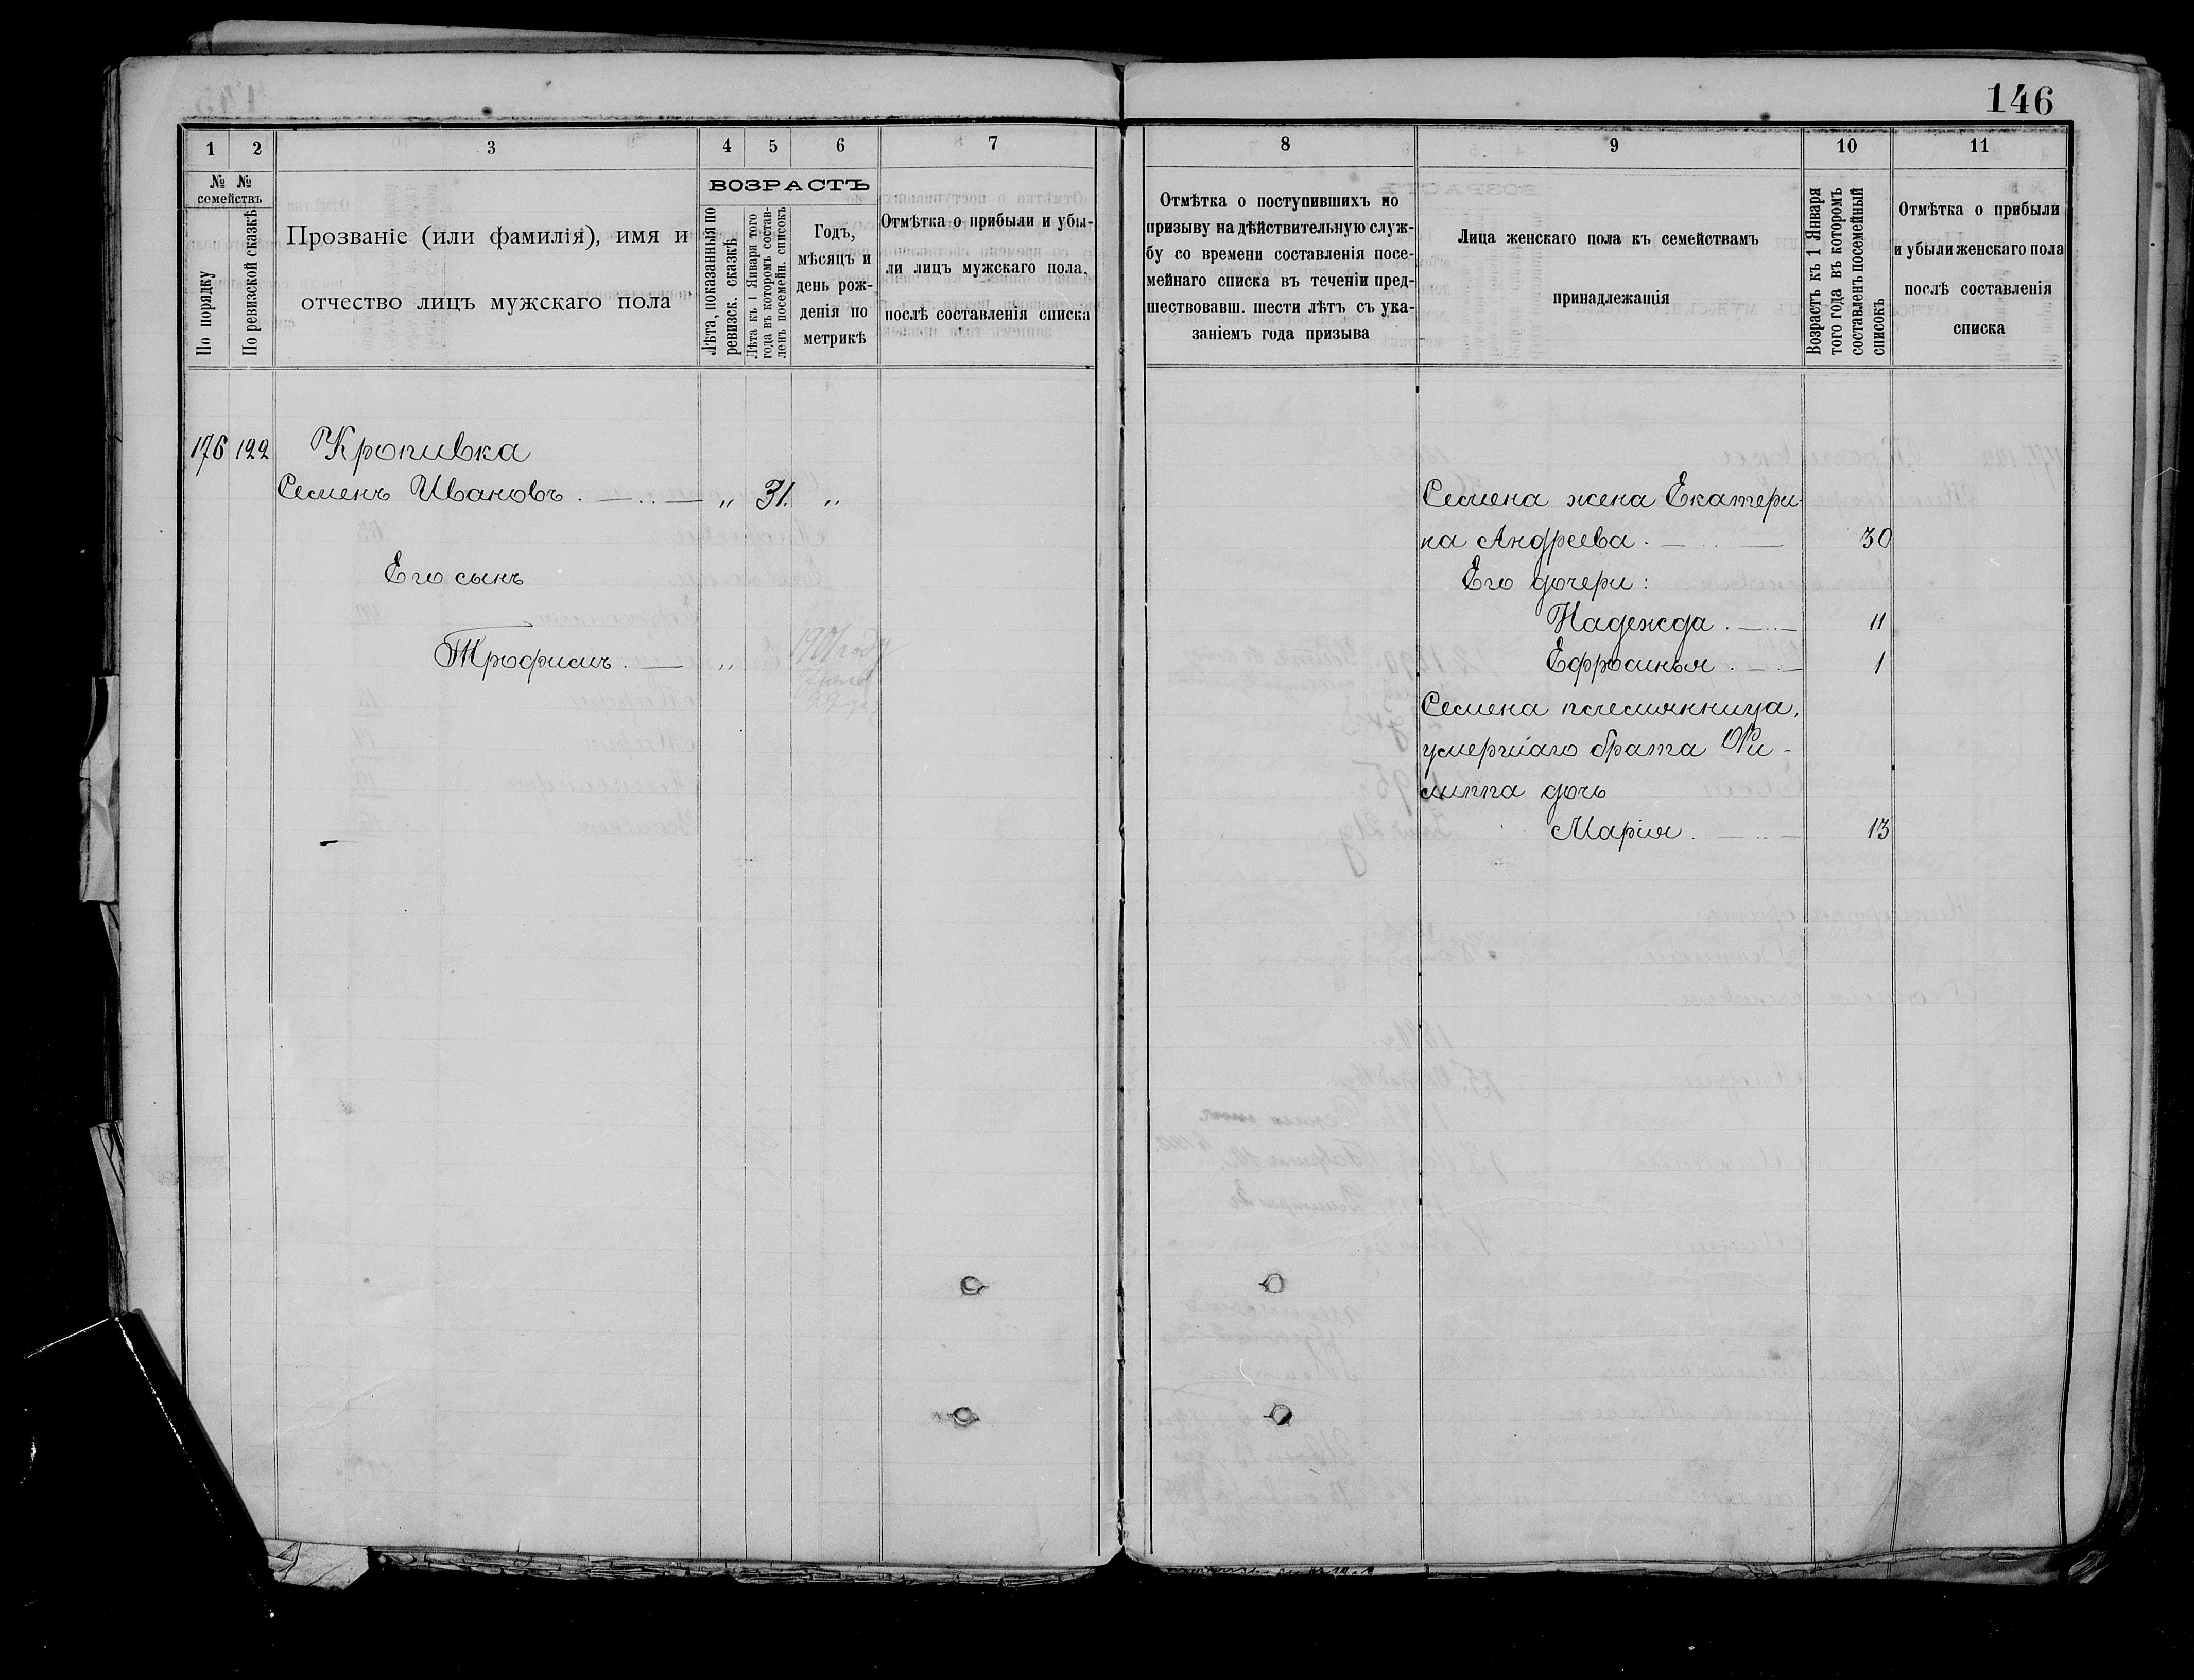 146
1
2
3
4
5
6
7
8
9
10
11
№ № семействъ
По порядку
По ревизской сказкѣ
Прозваніе (или фамилія), имя и
отчество лицъ мужскаго пола
ВОЗРАСТЪ
Лѣта, показанныя по
ревизск. сказкѣ
Лѣта къ 1 Января того
года въ которомъ состав-
ленъ посемейн. списокъ
Годъ,
мѣсяцъ и
день рож-
денія по
метрикѣ
Отмѣтка о прибыли и убы-
ли лицъ мужскаго пола,
послѣ составленія списка
Отмѣтка о поступившихъ по
призыву на дѣйствительную служ-
бу со времени составленія посе-
мейнаго списка въ теченіи пред-
шествовавш. шести лѣтъ съ ука-
заніемъ года призыва
Лица женскаго пола къ семействамъ
принадлежащія
Возрастъ къ 1 Января
того года въ которомъ
составленъ посемейный
списокъ
Отмѣтка о прибыли
и убыли женскаго пола
послѣ составленія
списка
176 122 Кропивка
Семенъ Ивановъ . — . . — „ 31. „
Его сынъ
Трофимъ . — „ 1901 году
Іюля
29 дня
Семена жена Екатери-
на Андреева . — . . — 30
Его дочери:
Надежда . — . . — 11
Ефросинья . — . — 1
Семена племянница,
умершаго брата Фи-
липпа дочь
Марія . — . . — 13